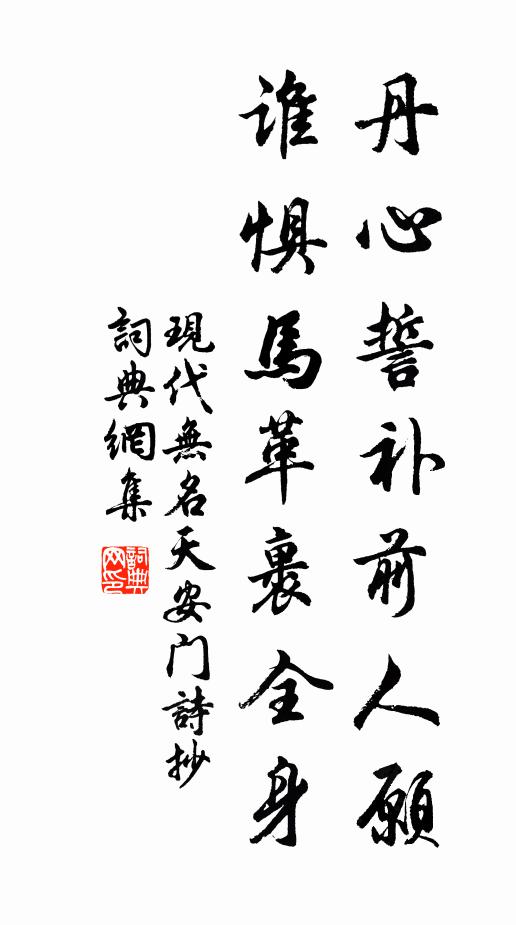 丹心誓补前人愿
谁惧馬革裹全身
現代無名天安门詩抄
詞典網集
詞典网印